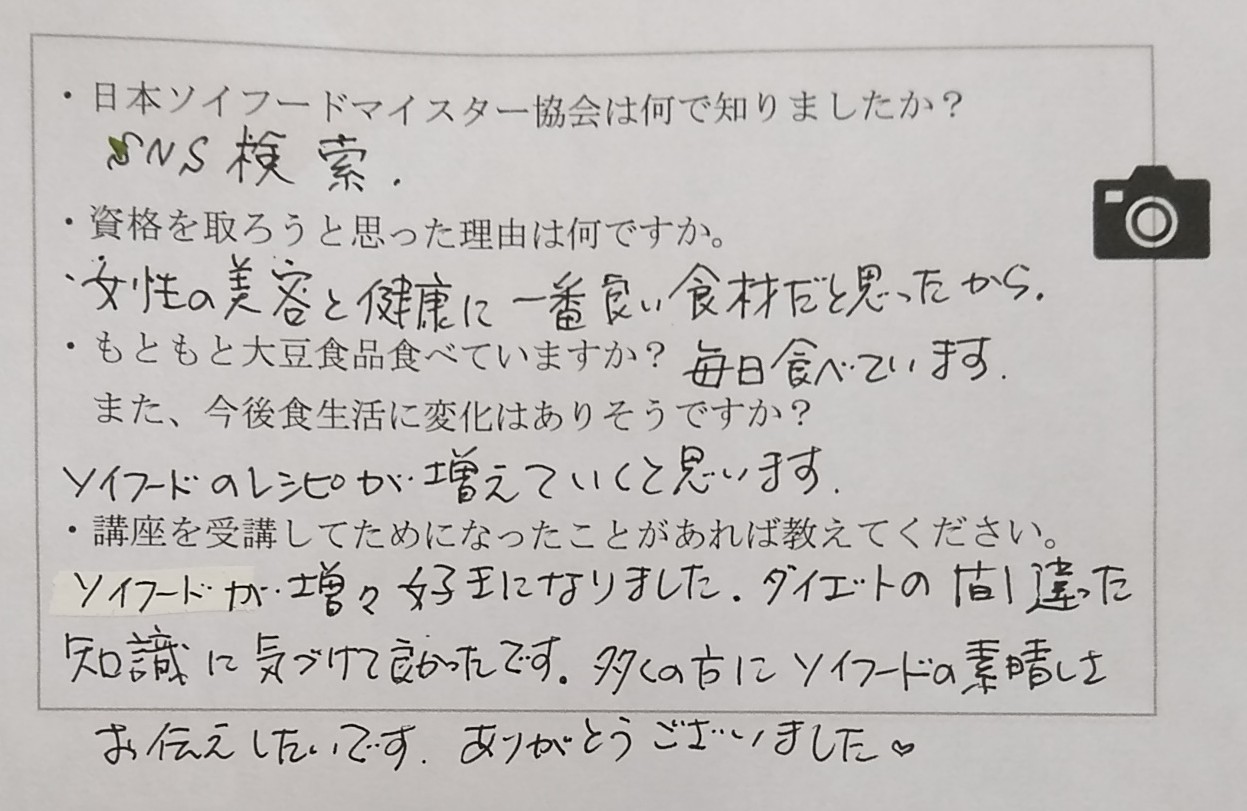 ・日本ソイフードマイスター協会は何で知りましたか？
SNS検索.
・資格を取ろうと思った理由は何ですか。
・女性の美容と健康に一番良い食材だと思ったから.
・もともと大豆食品食べていますか？ 毎日食べています.
また、今後食生活に変化はありそうですか？
ソイフードのレシピが増えていくと思います.
・講座を受講してためになったことがあれば教えてください。
ソイフードが増々好きになりました. ダイエットの間違った
知識に気づけて良かったです. 多くの方にソイフードの素晴しさ
お伝えしたいです. ありがとうございました♡